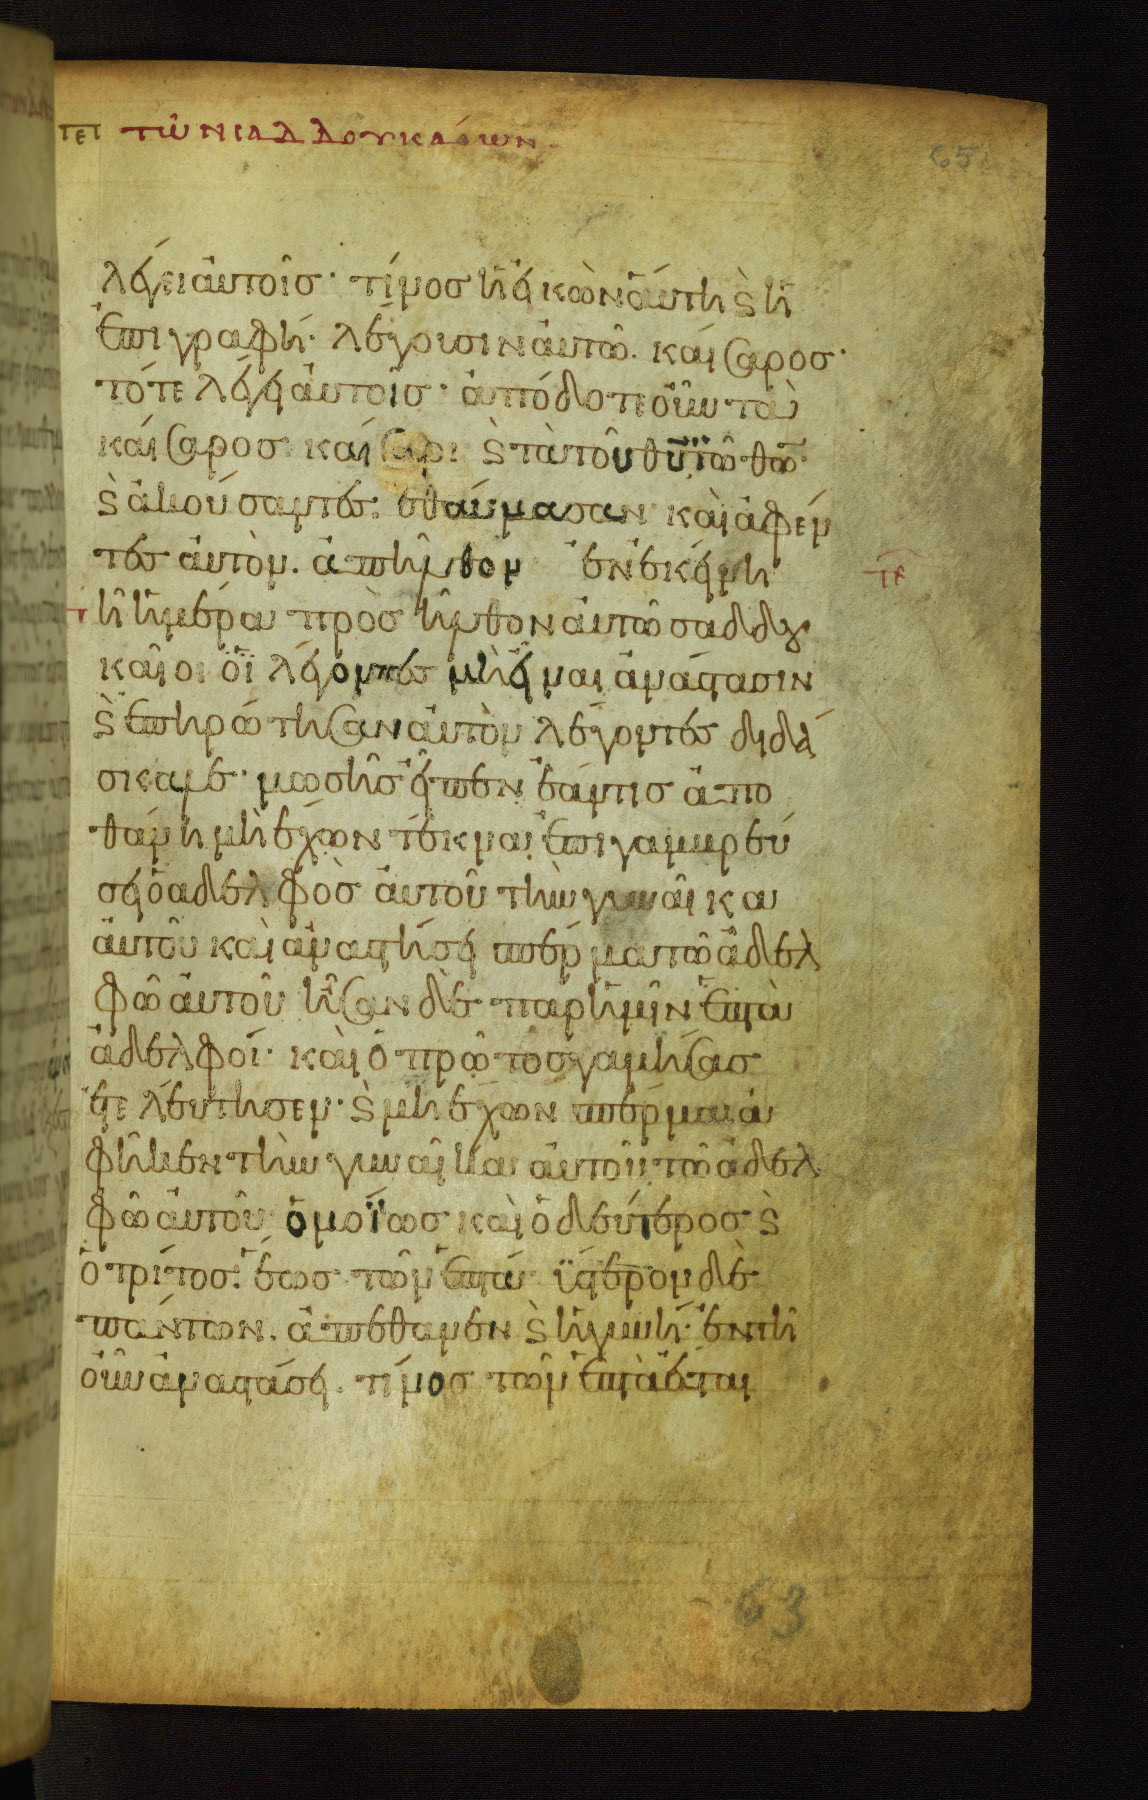 τει τῶν σαδδουκαίων
65
λέγει αὐτοῖσ· τίνοσ ἡ εἰκὼν αὕτη ϗ ἡ
ἐπιγραφή· λέγουσιν αὐτῶ. καίσαροσ·
τότε λέγει αὐτοῖσ· ἀπόδοτε οὖν τὰ
καίσαροσ καίσαρι ϗ τὰ τοῦ θῡ τῶ θω̄·
ϗ ἀκούσαντεσ· ἐθαύμασαν καὶ ἀφέν
τεσ αὐτὸν. ἀπῆλθον ἐν ἐκείνη
τε
τῆ ἡμέρα προσῆλθον αὐτῶ σαδδου
καῖοι οἳ λέγοντεσ μὴ εἶναι ἀνάστασιν
ϗ ἐπηρώτησαν αὐτὸν λέγοντεσ διδά
σκαλε· μωσῆσ εἶπεν ἐάν τισ ἀπο
θάνη μὴ ἔχων τέκνα ἐπιγαμβρεύ
σει ὁ ἀδελφὸσ αὐτοῦ τὴν γυναῖκα
αὐτοῦ καὶ ἀναστήσει σπέρμα τῶ ἀδελ
φῶ αὐτοῦ ἦσαν δὲ παρ ἡμῖν ἑπτὰ
ἀδελφοί· καὶ ὁ πρῶτοσ γαμήσασ
ἐτελεύτησεν· ϗ μὴ ἔχων σπέρμα ἀ
φῆκεν τὴν γυναῖκα αὐτοῦ τῶ ἀδελ
φῶ αὐτοῦ ὁμοίωσ καὶ ὁ δεύτεροσ ϗ
ὁ τρίτοσ· ἕωσ τῶν ἑπτά ὕστερον δὲ
πάντων. ἀπέθανεν ϗ ἡ γυνή· ἐν τῆ
οὖν ἀναστάσει. τίνοσ τῶν ἑπτὰ ἔσται
63